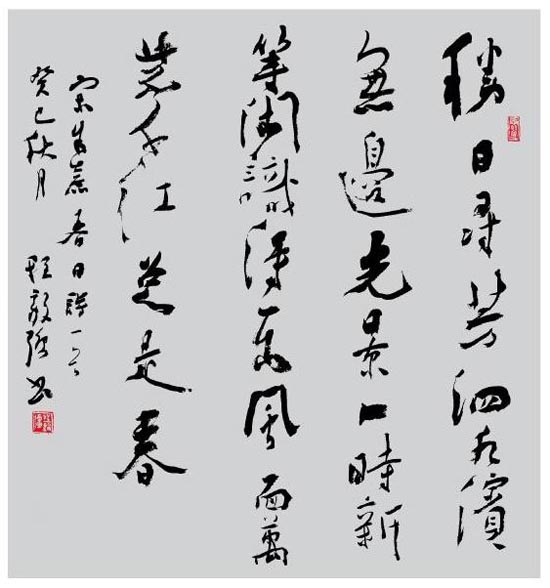 勝日尋芳泗水濱
無邊光景一時新
等閑識得東風面萬
紫千紅總是春
宋朱熹春日詩一首
癸巳秋月 程 强书